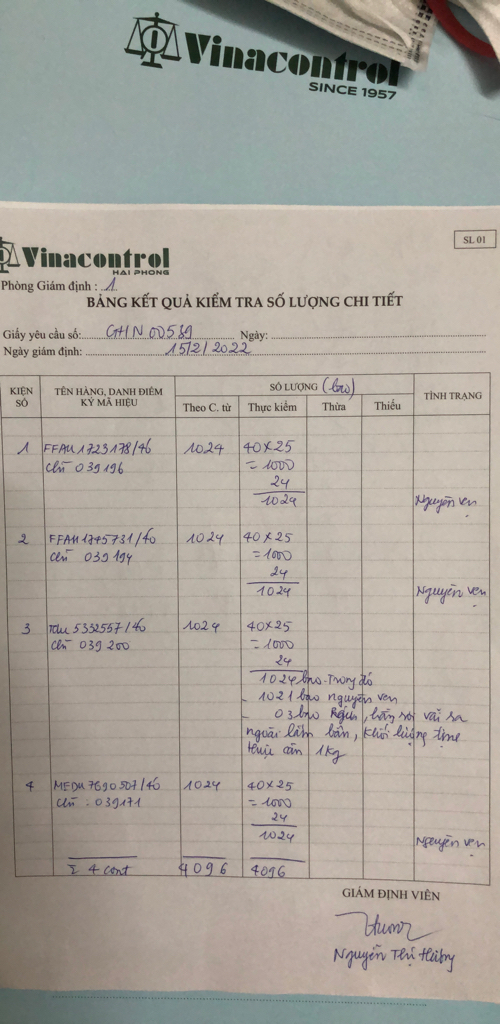 Vinacontrol
SINCE 1957
Vinacontrol
HAI PHONG
SL 01
Phòng Giám định : 1
BẢNG KẾT QUẢ KIỂM TRA SỐ LƯỢNG CHI TIẾT
Giấy yêu cầu số: GHN 00539 Ngày:
Ngày giám định: 15/2/2022
KIỆN SỐ
TÊN HÀNG, DANH ĐIỂM KÝ MÃ HIỆU
SỐ LƯỢNG (bao)
Theo C. từ
Thực kiểm
Thừa
Thiếu
TÌNH TRẠNG
1 FFAU 1723178/40 1024 40x25
chì 039196 = 1000
24
1024 Nguyên vẹn
2 FFAU 1745731/40 1024 40x25
chì 039194 = 1000
24
1024 Nguyên vẹn
3 5332557/40 1024 40x25
chì 039200 = 1000
24
1024 bao. Trong đó
- 1021 bao nguyên vẹn
- 03 bao , hàng rơi vãi ra
ngoài lấm bẩn, khối lượng
thực cân 1kg
4 MEDU 7690507/40 1024 40x25
chì : 039171 = 1000
24
1024 Nguyên vẹn
Σ 4 cont 4096 4096
GIÁM ĐỊNH VIÊN
Nguyễn Thị